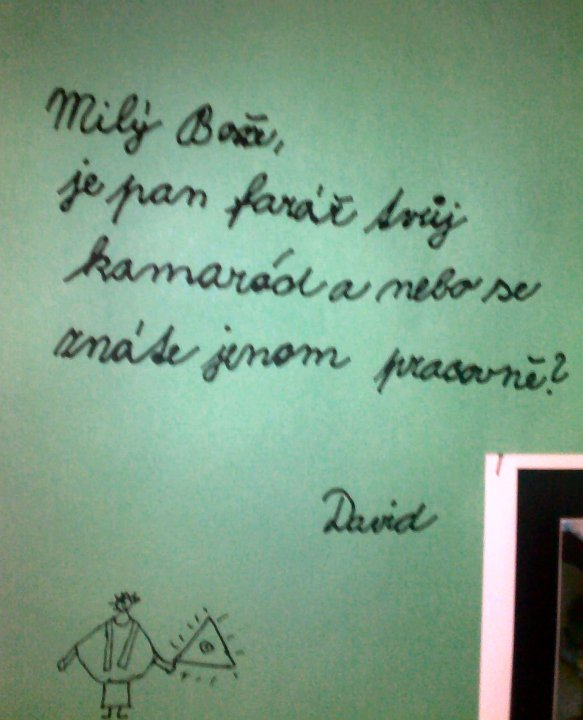 Milý Bože,
je pan farář tvůj
kamarád a nebo se
znáte jenom pracovně?
David